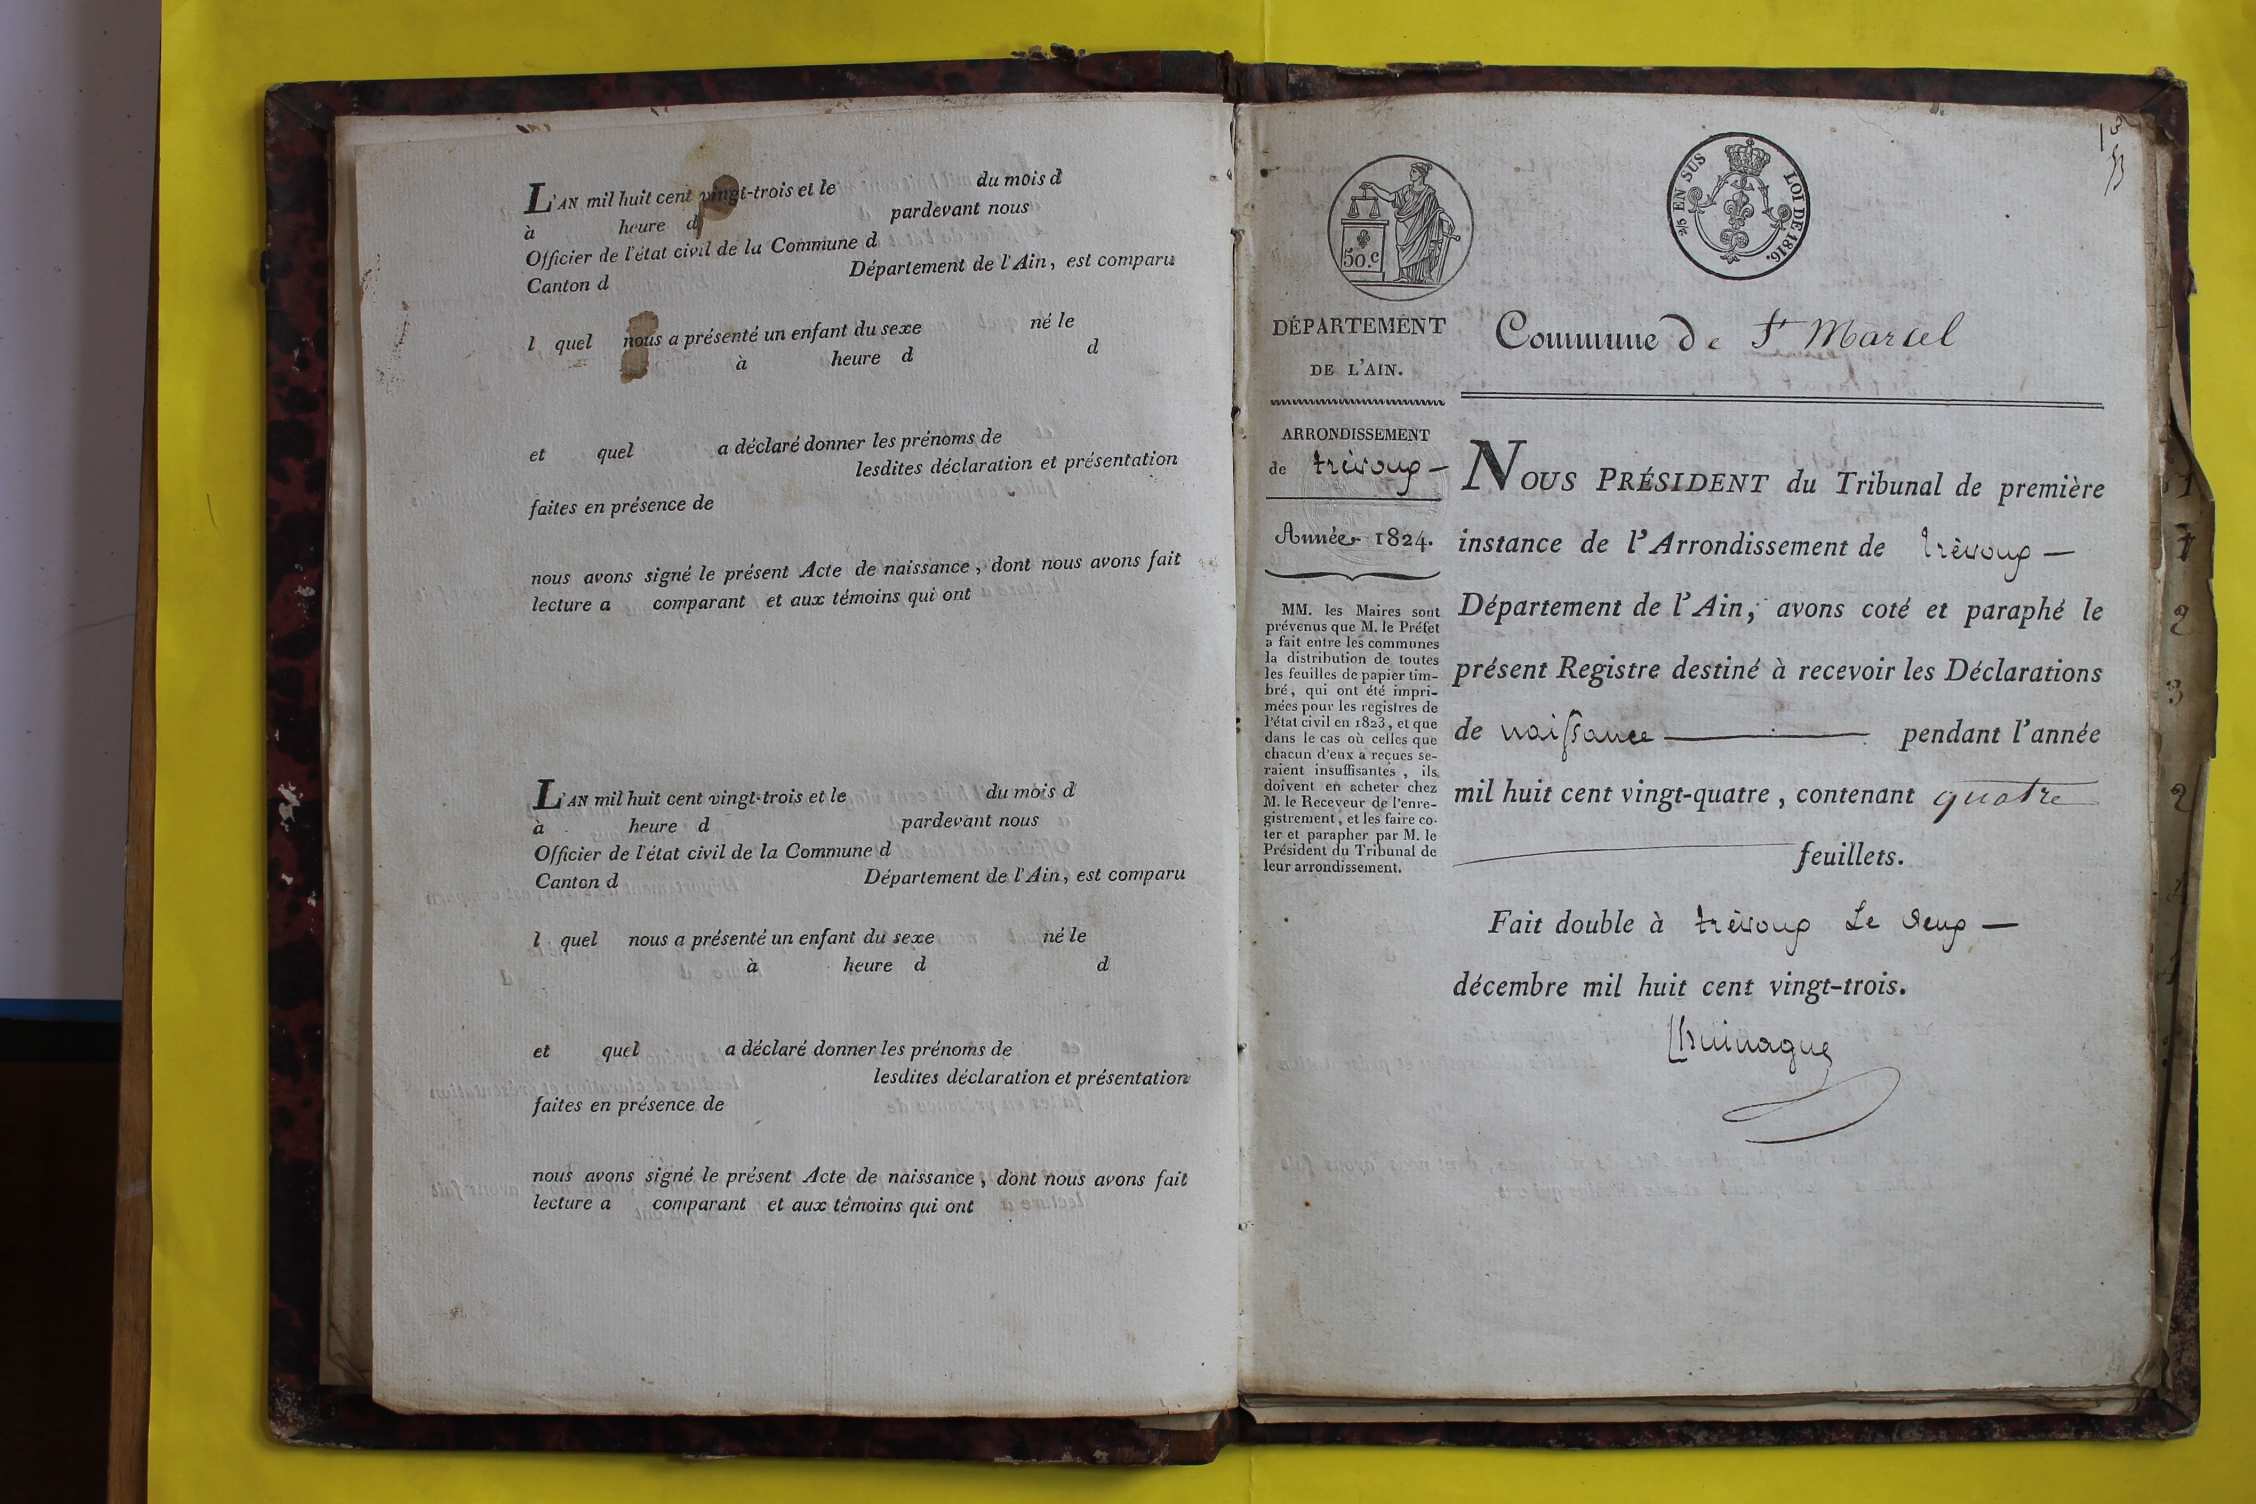 L'AN mil huit cent vingt-trois et le du mois d
à heure d pardevant nous
Officier de l'état civil de la Commune d
Canton d Département de l'Ain, est comparu
l quel nous a présenté un enfant du sexe né le
à heure d d
et quel a déclaré donner les prénoms de
lesdites déclaration et présentation
faites en présence de
nous avons signé le présent Acte de naissance, dont nous avons fait
lecture a comparant et aux témoins qui ont
L'AN mil huit cent vingt-trois et le du mois d
à heure d pardevant nous
Officier de l'état civil de la Commune d
Canton d Département de l'Ain, est comparu
l quel nous a présenté un enfant du sexe né le
à heure d d
et quel a déclaré donner les prénoms de
lesdites déclaration et présentation
faites en présence de
nous avons signé le présent Acte de naissance, dont nous avons fait
lecture a comparant et aux témoins qui ont
50.c
2/5 EN SUS LOI DE 1816.
DÉPARTEMENT
DE L'AIN.
ARRONDISSEMENT
de trévoux —
Année 1824.
MM. les Maires sont
prévenus que M. le Préfet
a fait entre les communes
la distribution de toutes
les feuilles de papier tim-
bré, qui ont été impri-
mées pour les registres de
l'état civil en 1823, et que
dans le cas où celles que
chacun d'eux a reçues se-
raient insuffisantes, ils
doivent en acheter chez
M. le Receveur de l'enre-
gistrement, et les faire co-
ter et parapher par M. le
Président du Tribunal de
leur arrondissement.
Commune de St Marcel
NOUS PRÉSIDENT du Tribunal de première
instance de l'Arrondissement de trévoux —
Département de l'Ain, avons coté et paraphé le
présent Registre destiné à recevoir les Déclarations
de naissance — pendant l'année
mil huit cent vingt-quatre, contenant quatre
— feuillets.
Fait double à trévoux Le deux —
décembre mil huit cent vingt-trois.
1
1
2
3
2